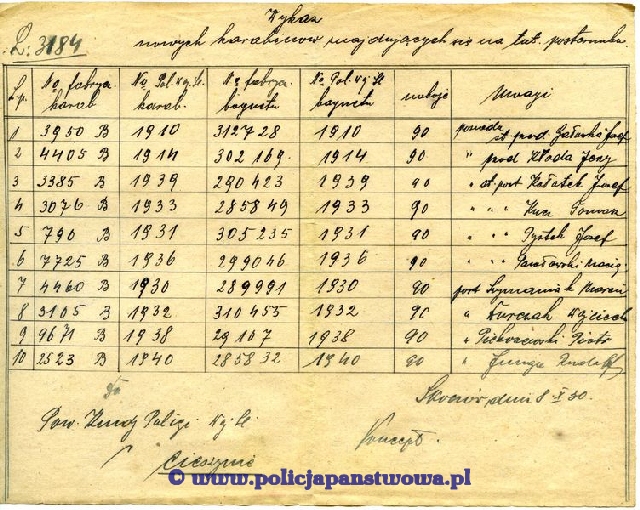 Wykaz
L. 3184 nowych karabinów znajdujących się na tut. posterunku
L.p. No fabryc. karab. No Pol. Wj. Śl. karab. No fabryc. bagnetu No Pol. Wj. Śl bagnetu naboje Uwagi
1 3950 B 1910 312728 1910 90 posiada st. przod. Józef
2 4405 B 1914 302169. 1914 90 " przod Kłoda Jerzy
3 3385 B 1939 290423 1939 90 " st. post Józef
4 3076 B 1933 285849 1933 90 " " "
5 790 B 1931 305235 1931 90 " " Józef
6 7725 B 1936 299046 1936 90 " "
7 4460 B 1930 289991 1930 90 post
8 3105 B 1932 310455 1932 90 " Kurczak Wojciech
9 9671 B 1938 29107 1938 90 " Piotr
10 2523 B 1940 285832 1940 90 "
Do Skoczów dnia 8 X 30.
Pow. Kendy Policji Wj. Śl. Koncept.
w Cieszynie
© www.policjapanstwowa.pl